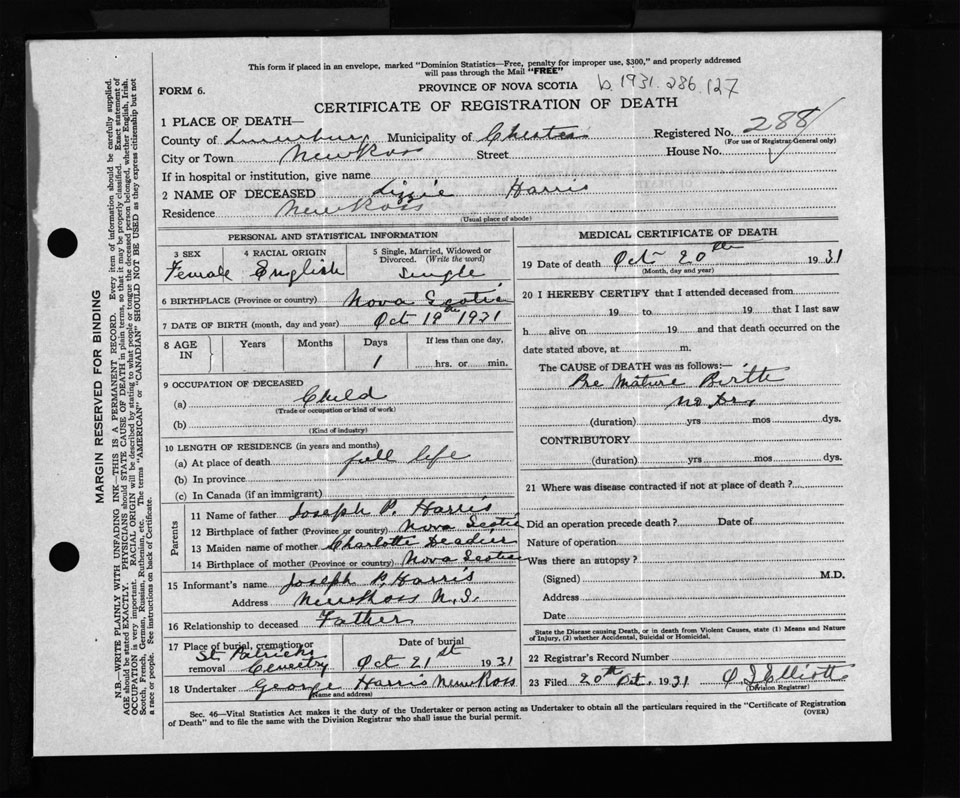 This form if placed in an envelope, marked "Dominion Statistics—Free, penalty for improper use, $300," and properly addressed
will pass through the Mail "FREE"
FORM 6.
PROVINCE OF NOVA SCOTIA b. 1931.286.127
CERTIFICATE OF REGISTRATION OF DEATH
1 PLACE OF DEATH—
County of Lunenburg Municipality of Chester Registered No. 288
(For use of Registrar General only)
City or Town New Ross Street House No.
If in hospital or institution, give name
2 NAME OF DECEASED Lizzie Harris
Residence New Ross
(Usual place of abode)
PERSONAL AND STATISTICAL INFORMATION
3 SEX 4 RACIAL ORIGIN 5 Single, Married, Widowed or Divorced. (Write the word)
Female English Single
6 BIRTHPLACE (Province or country) Nova Scotia
7 DATE OF BIRTH (month, day and year) Oct 19th 1931
8 AGE IN Years Months Days If less than one day,
1 hrs. or min.
9 OCCUPATION OF DECEASED
(a) Child
(Trade or occupation or kind of work)
(b)
(Kind of industry)
10 LENGTH OF RESIDENCE (in years and months)
(a) At place of death full life
(b) In province
(c) In Canada (if an immigrant)
Parents
11 Name of father Joseph P. Harris
12 Birthplace of father (Province or country) Nova Scotia
13 Maiden name of mother Charlotte
14 Birthplace of mother (Province or country) Nova Scotia
15 Informant's name Joseph P. Harris
Address New Ross N.S.
16 Relationship to deceased Father
17 Place of burial, cremation or removal St Patricks Cemetry Date of burial Oct 21st 1931
18 Undertaker George Harris New Ross
(Name and address)
MEDICAL CERTIFICATE OF DEATH
19 Date of death Oct 20th 1931
(Month, day and year)
20 I HEREBY CERTIFY that I attended deceased from
19 to 19 that I last saw
h alive on 19 and that death occurred on the
date stated above, at m.
The CAUSE of DEATH was as follows:—
Pre Mature Birth
no Dr.
(duration) yrs mos dys.
CONTRIBUTORY
(duration) yrs mos dys.
21 Where was disease contracted if not at place of death?
Did an operation precede death? Date of
Nature of operation
Was there an autopsy?
(Signed) M.D.
Address
Date
State the Disease causing Death, or in death from Violent Causes, state (1) Means and Nature
of Injury, (2) whether Accidental, Suicidal or Homicidal.
22 Registrar's Record Number
23 Filed 20th Oct. 1931 Elliott
(Division Registrar)
Sec. 46—Vital Statistics Act makes it the duty of the Undertaker or person acting as Undertaker to obtain all the particulars required in the "Certificate of Registration
of Death" and to file the same with the Division Registrar who shall issue the burial permit.
(OVER)
MARGIN RESERVED FOR BINDING
N.B.—WRITE PLAINLY WITH UNFADING INK—THIS IS A PERMANENT RECORD. Every item of information should be carefully supplied.
AGE should be stated EXACTLY. PHYSICIANS should STATE CAUSE OF DEATH in plain terms, so that it may be properly classified. Exact statement of
OCCUPATION is very important. RACIAL ORIGIN will be described by stating to what people or tongue the deceased person belonged, whether English, Irish,
Scotch, French, German, Russian, Ruthenian, etc. The terms "AMERICAN" or "CANADIAN" SHOULD NOT BE USED as they express citizenship but not
a race or people. See instructions on back of Certificate.